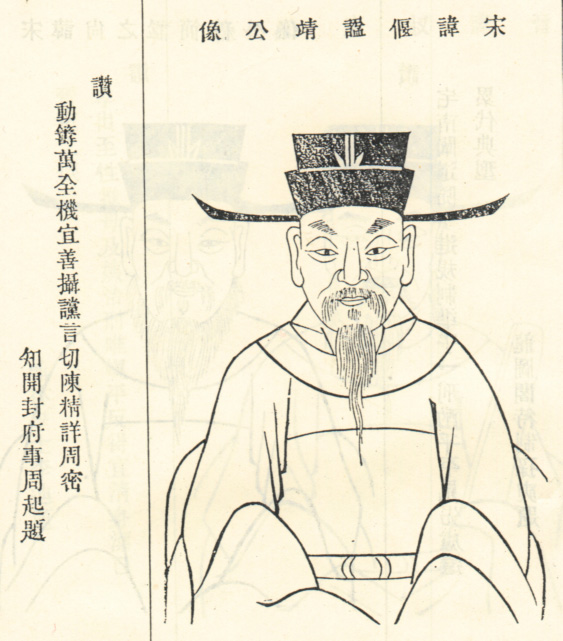 宋諱偃謚靖公像
讚
動籌萬全機宜善攝讜言切陳精詳周密
知開封府事周起題